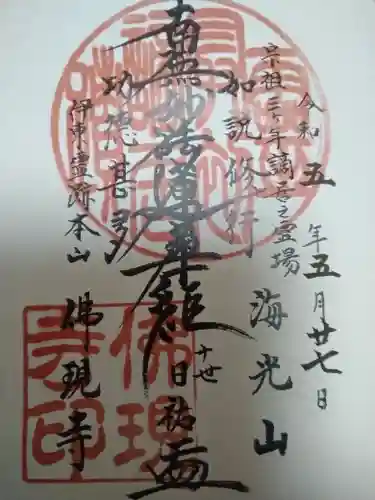 令和五年五月廿七日
宗祖三ヶ年謫居之霊場
海光山
如説修行
南無妙法蓮華経
廿世 日祐
功徳甚多
伊東霊跡本山
佛現寺